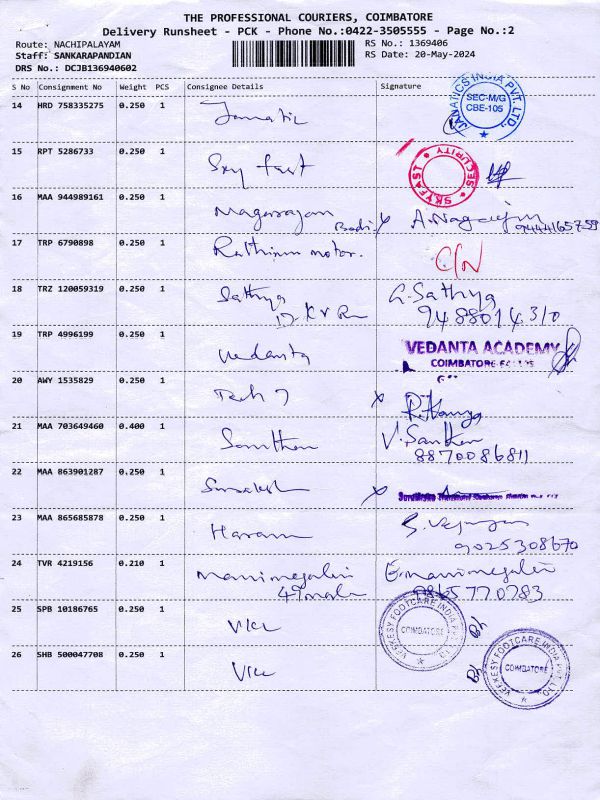 THE PROFESSIONAL COURIERS, COIMBATORE
Delivery Runsheet - PCK - Phone No.:0422-3505555 - Page No.:2
Route: NACHIPALAYAM
RS No.: 1369406
Staff: SANKARAPANDIAN
RS Date: 20-May-2024
DRS No.: DCJB136940602
S No Consignment No Weight PCS Consignee Details Signature
14 HRD 758335275 0.250 1 Jamatic
JAMATICS INDIA PVT. LTD.
SEC-M/G
CBE-105
15 RPT 5286733 0.250 1 Sky fast
SKYFAST SECURITY
16 MAA 944989161 0.250 1 Nagarajan A. Nagarajan
9444165759
17 TRP 6790898 0.250 1 Rathinam motor. C/N
18 TRZ 120059319 0.250 1 Sathya G. Sathya
9488014310
19 TRP 4996199 0.250 1 Vedanta VEDANTA ACADEMY
COIMBATORE
20 AWY 1535829 0.250 1 Tech
21 MAA 703649460 0.400 1 V. Santhan
8870086811
22 MAA 863901287 0.250 1
23 MAA 865685878 0.250 1
9025308670
24 TVR 4219156 0.210 1 Manimegalai E. Manimegalai
9865770783
25 SPB 10186765 0.250 1 VKC
VEEKESY FOOTCARE INDIA PVT. LTD.
COIMBATORE
26 SHB 500047708 0.250 1 VKC
VEEKESY FOOTCARE INDIA PVT. LTD.
COIMBATORE